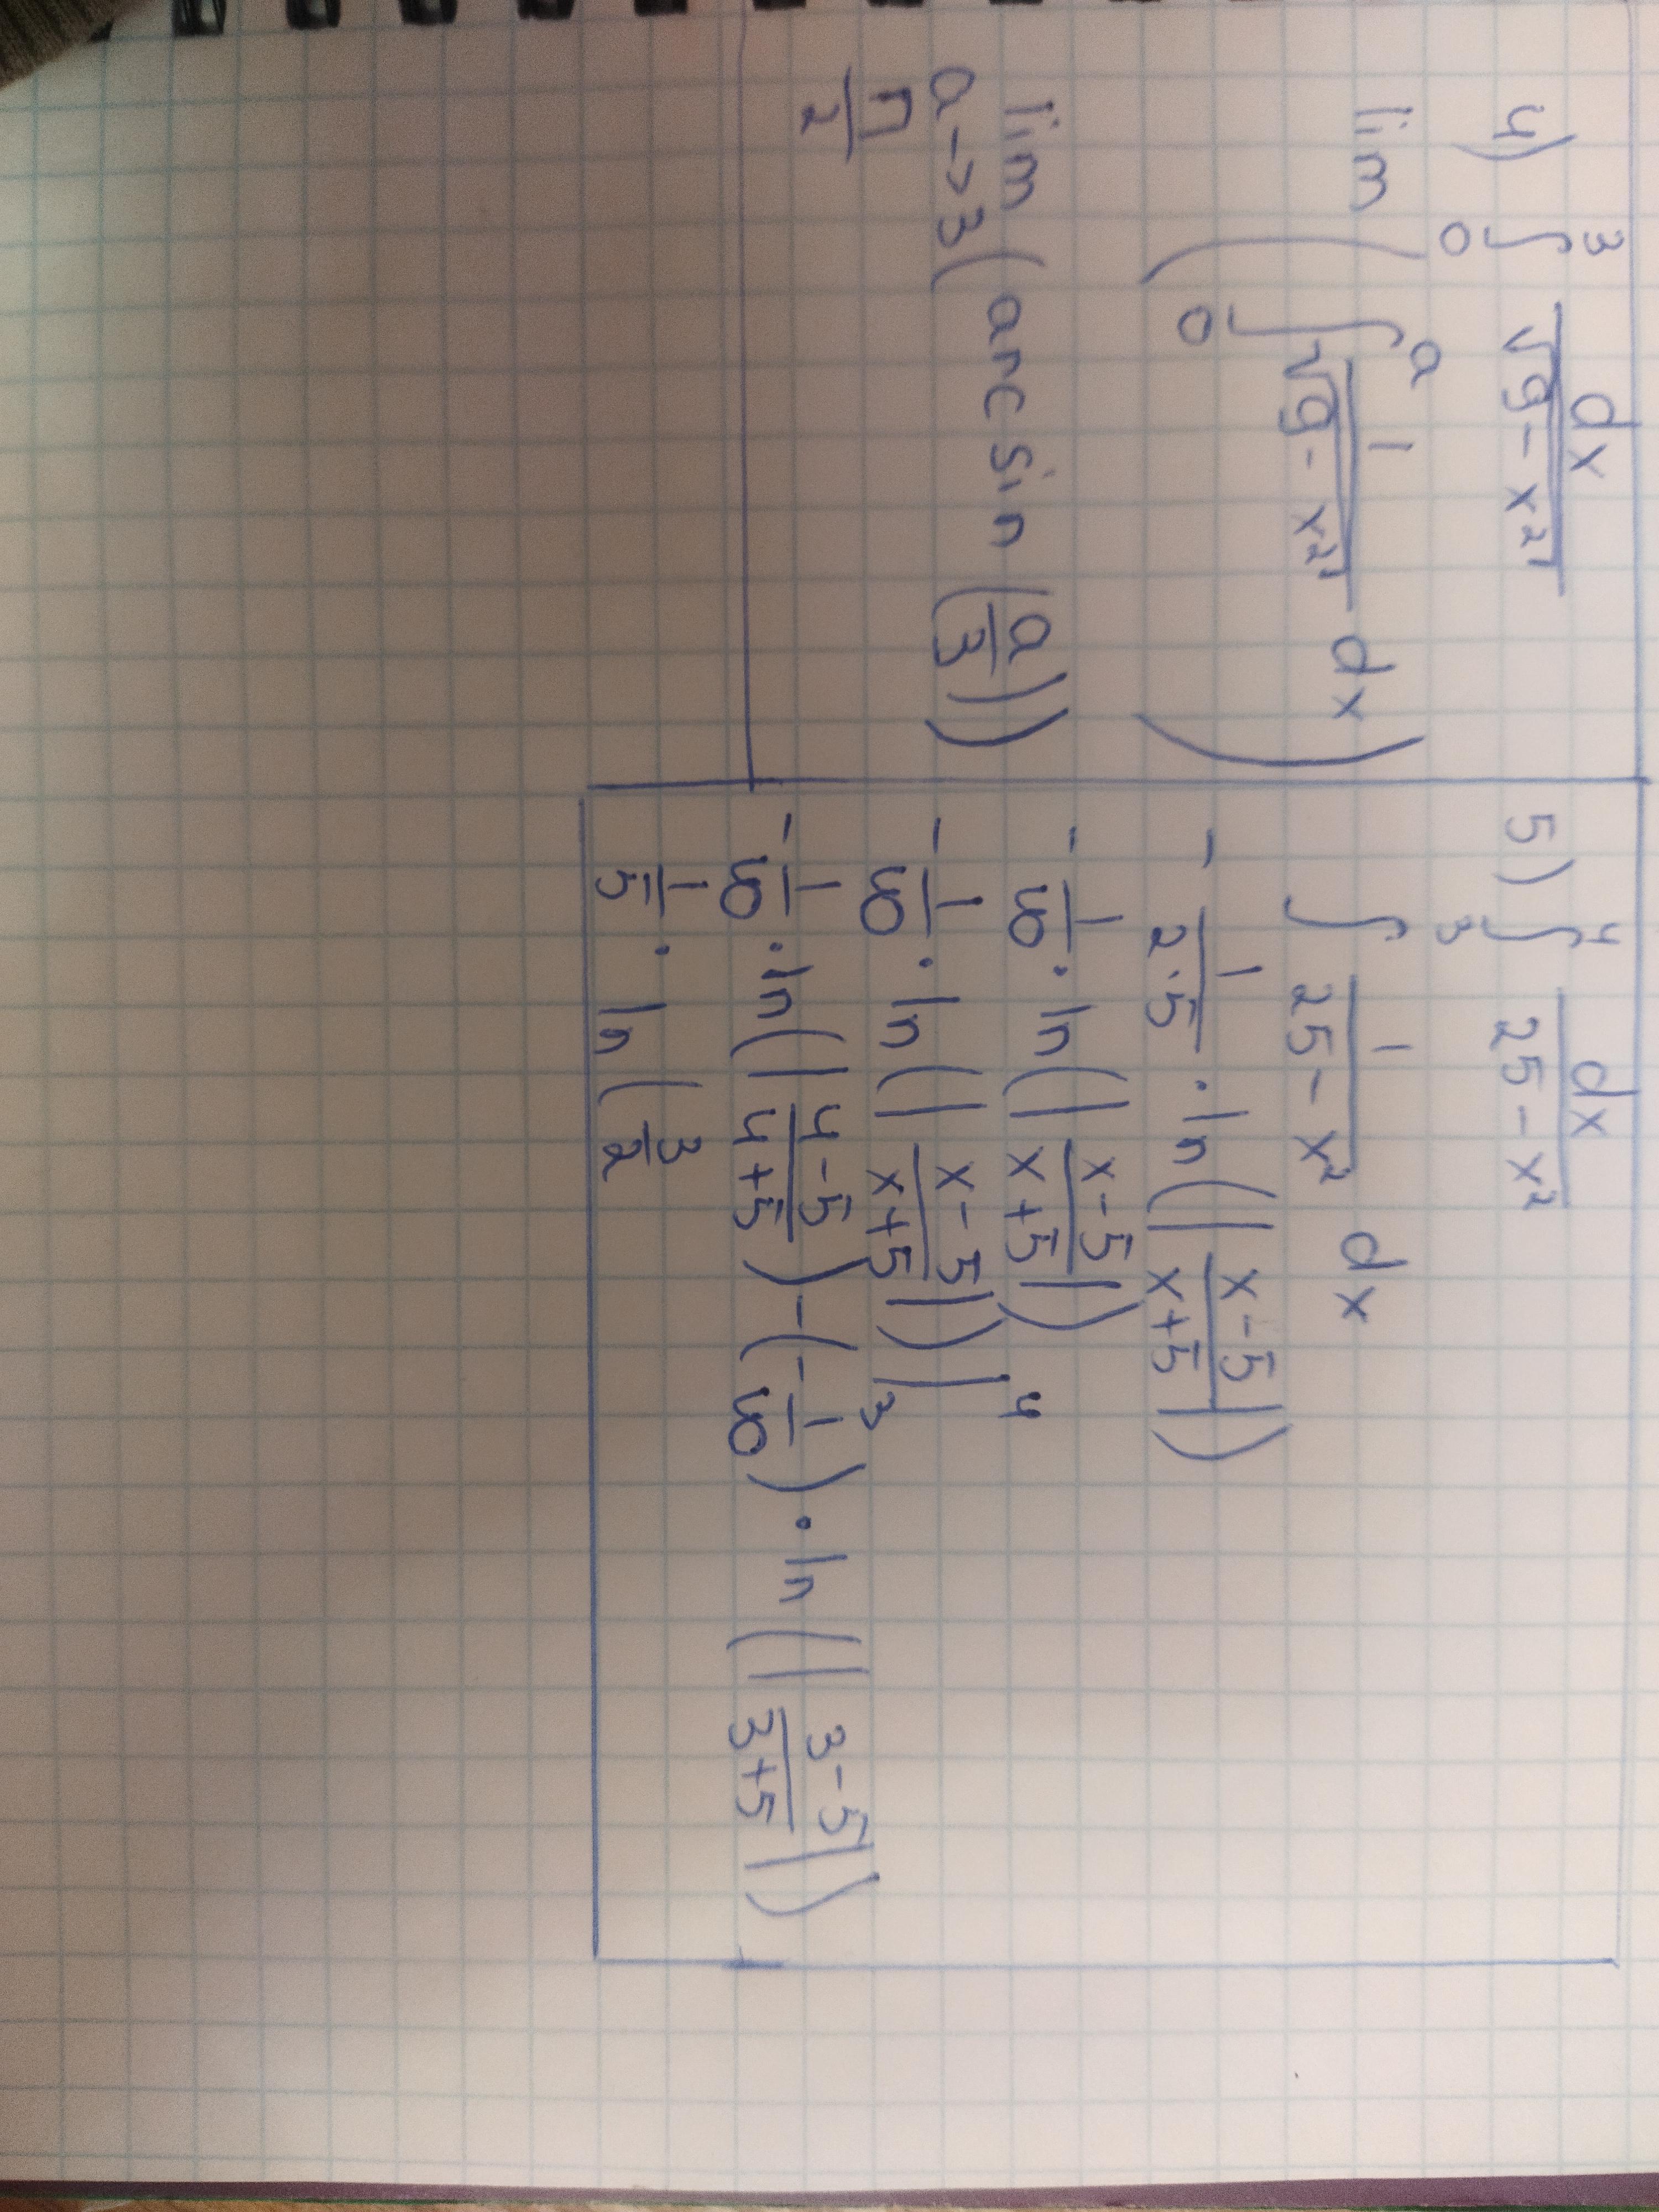 4) ∫₀³ dx/√(9-x²)
lim (∫₀ᵃ 1/√(9-x²) dx)
lim a->3 (arcsin (a/3))
п/2
5) ∫₃⁴ dx/(25-x²)
∫ 1/(25-x²) dx
- 1/(2·5) · ln(|(x-5)/(x+5)|)
- 1/10 · ln(|(x-5)/(x+5)|)
- 1/10 · ln(|(x-5)/(x+5)|)|₃⁴
- 1/10 · ln(|(4-5)/(4+5)) - (- 1/10) · ln(|(3-5)/(3+5)|)
1/5 · ln(3/2